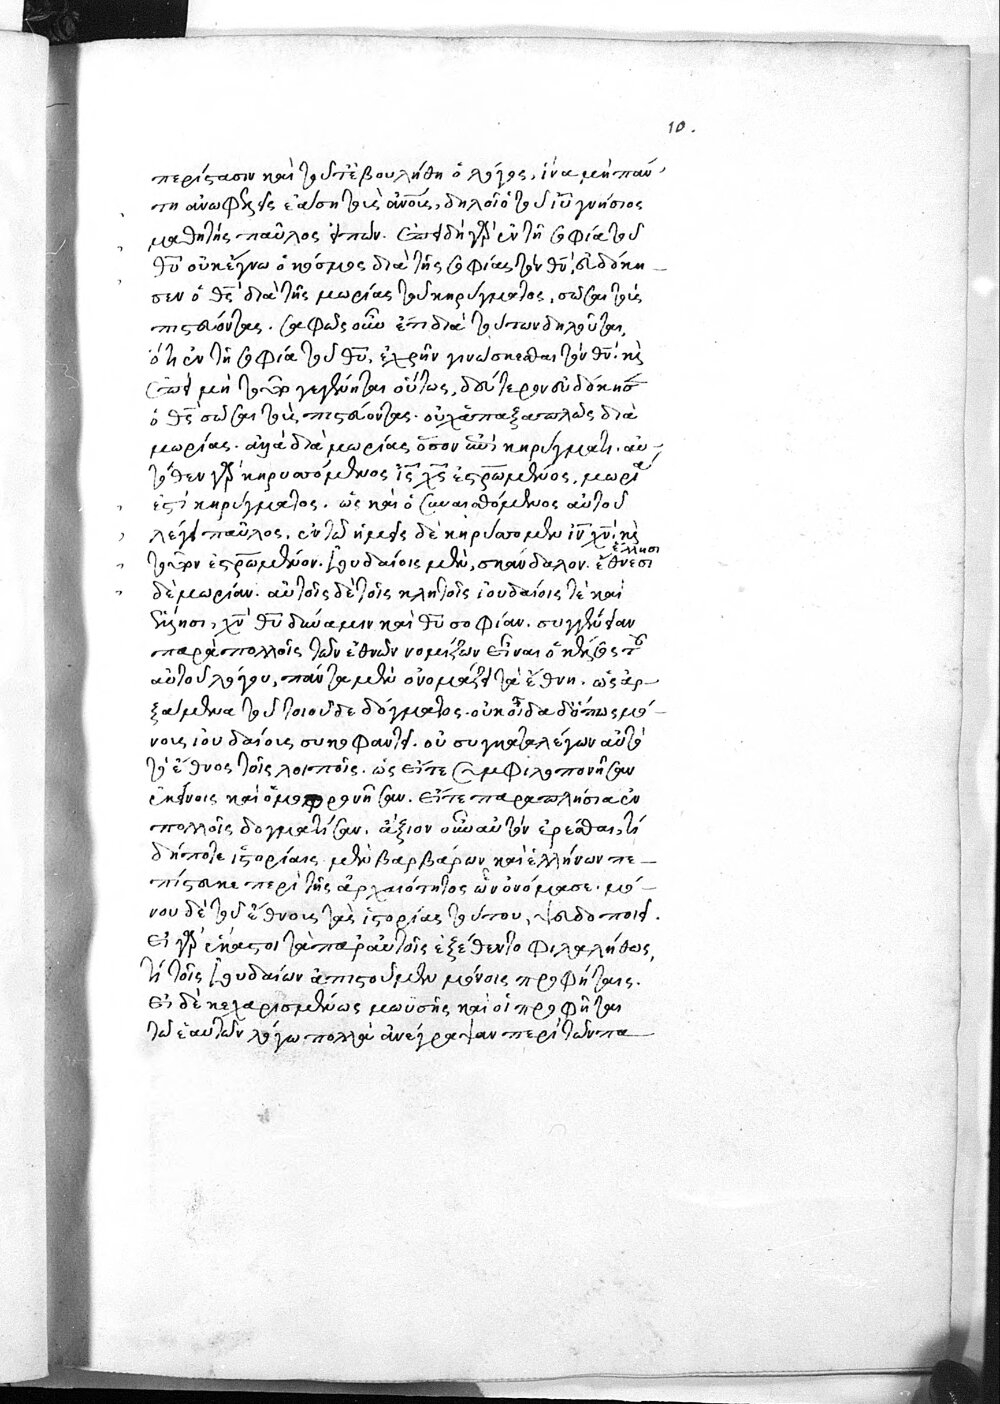 10.
περίστασιν καὶ τοῦτ' ἐβουλήθη ὁ λόγος, ἵνα μὴ πάν-
τη ἀνωφελεῖς ἐάσῃ τοὺς ἀνο͞υς, δηλοῖ ὁ τοῦ ι͞υ γνήσιος
μαθητὴς παῦλος εἰπών. ἐπειδὴ γὰρ ἐν τῇ σοφίᾳ τοῦ
θ͞υ οὐκ ἔγνω ὁ κόσμος διὰ τῆς σοφίας τὸν θ͞ν, εὐδόκη-
σεν ὁ θ͞ς διὰ τῆς μωρίας τοῦ κηρύγματος, σῶσαι τοὺς
πιστεύοντας. σαφῶς οὖν ἐπὶ διὰ τούτων δηλοῦται,
ὅτι ἐν τῇ σοφίᾳ τοῦ θ͞υ, ἐχρῆν γινώσκεσθαι τὸν θ͞ν. κὶ
ἐπεὶ μὴ τοῦτο γεγένηται οὕτως, δεύτερον εὐδόκησεν
ὁ θ͞ς σῶσαι τοὺς πιστεύοντας. οὐχ ἅπαξ ἁπλῶς διὰ
μωρίας. ἀλλὰ διὰ μωρίας ὅσον ἐπὶ κηρύγματι. αὐ-
τόθεν γὰρ κηρυσσόμενος ι͞ς χ͞ς ἐσταυρωμένος, μωρία
ἐστὶ κηρύγματος. ὡς καὶ ὁ συναισθόμενος αὐτοῦ
λέγει παῦλος, ἐν τῷ ἡμεῖς δὲ κηρύσσομεν ι͞ν χ͞ν. κὶ
τοῦτον ἐσταυρωμένον. ἰουδαίοις μὲν, σκάνδαλον. ἔθνεσι
ἕλλησι
δὲ μωρίαν. αὐτοῖς δὲ τοῖς κλητοῖς ἰουδαίοις τὲ καὶ
ἕλλησι, χ͞ν θ͞υ δύναμιν καὶ θ͞υ σοφίαν. συγγένειαν
παρὰ πολλοῖς τῶν ἐθνῶν νομίζων εἶναι ὁ κέλσος τοῦ
αὐτοῦ λόγου, πάντα μὲν ὀνομάζει τὰ ἔθνη. ὡς ἀρ-
ξάμενα τοῦ τοιοῦδε δόγματος. οὐκ οἶδα δ' ὅπως μό-
νοις ἰουδαίοις συκοφαντεῖ. οὐ συγκαταλέγων αὐτῶν
τὸ ἔθνος τοῖς λοιποῖς. ὡς εἴτε συμφιλοπονῆσαν
ἐκείνοις καὶ ὁμοφρονῆσαν. εἴτε παραπλήσια ἐν
πολλοῖς δογματίσαν. ἄξιον οὖν αὐτὸν ἐρέσθαι, τί
δήποτε ἱστορίαις μὲν βαρβάρων καὶ ἑλλήνων πε-
πίστευκε περὶ τῆς ἀρχαιότητος ὧν ὀνόμασε. μό-
νου δὲ τοῦ ἔθνους τὰς ἱστορίας τούτου, ψευδοποιεῖ.
εἰ γὰρ ἕκαστοι τὰ παρ' αὐτοῖς ἐξέθεντο φιλαλήθως,
τί τοῖς ἰουδαίων ἀπιστοῦμεν μόνοις προφήταις.
εἰ δὲ κεχαρισμένως μωϋσῆς καὶ οἱ προφῆται
τῷ ἑαυτῶν λόγῳ πολλὰ ἀνέγραψαν περὶ τῶν πα-